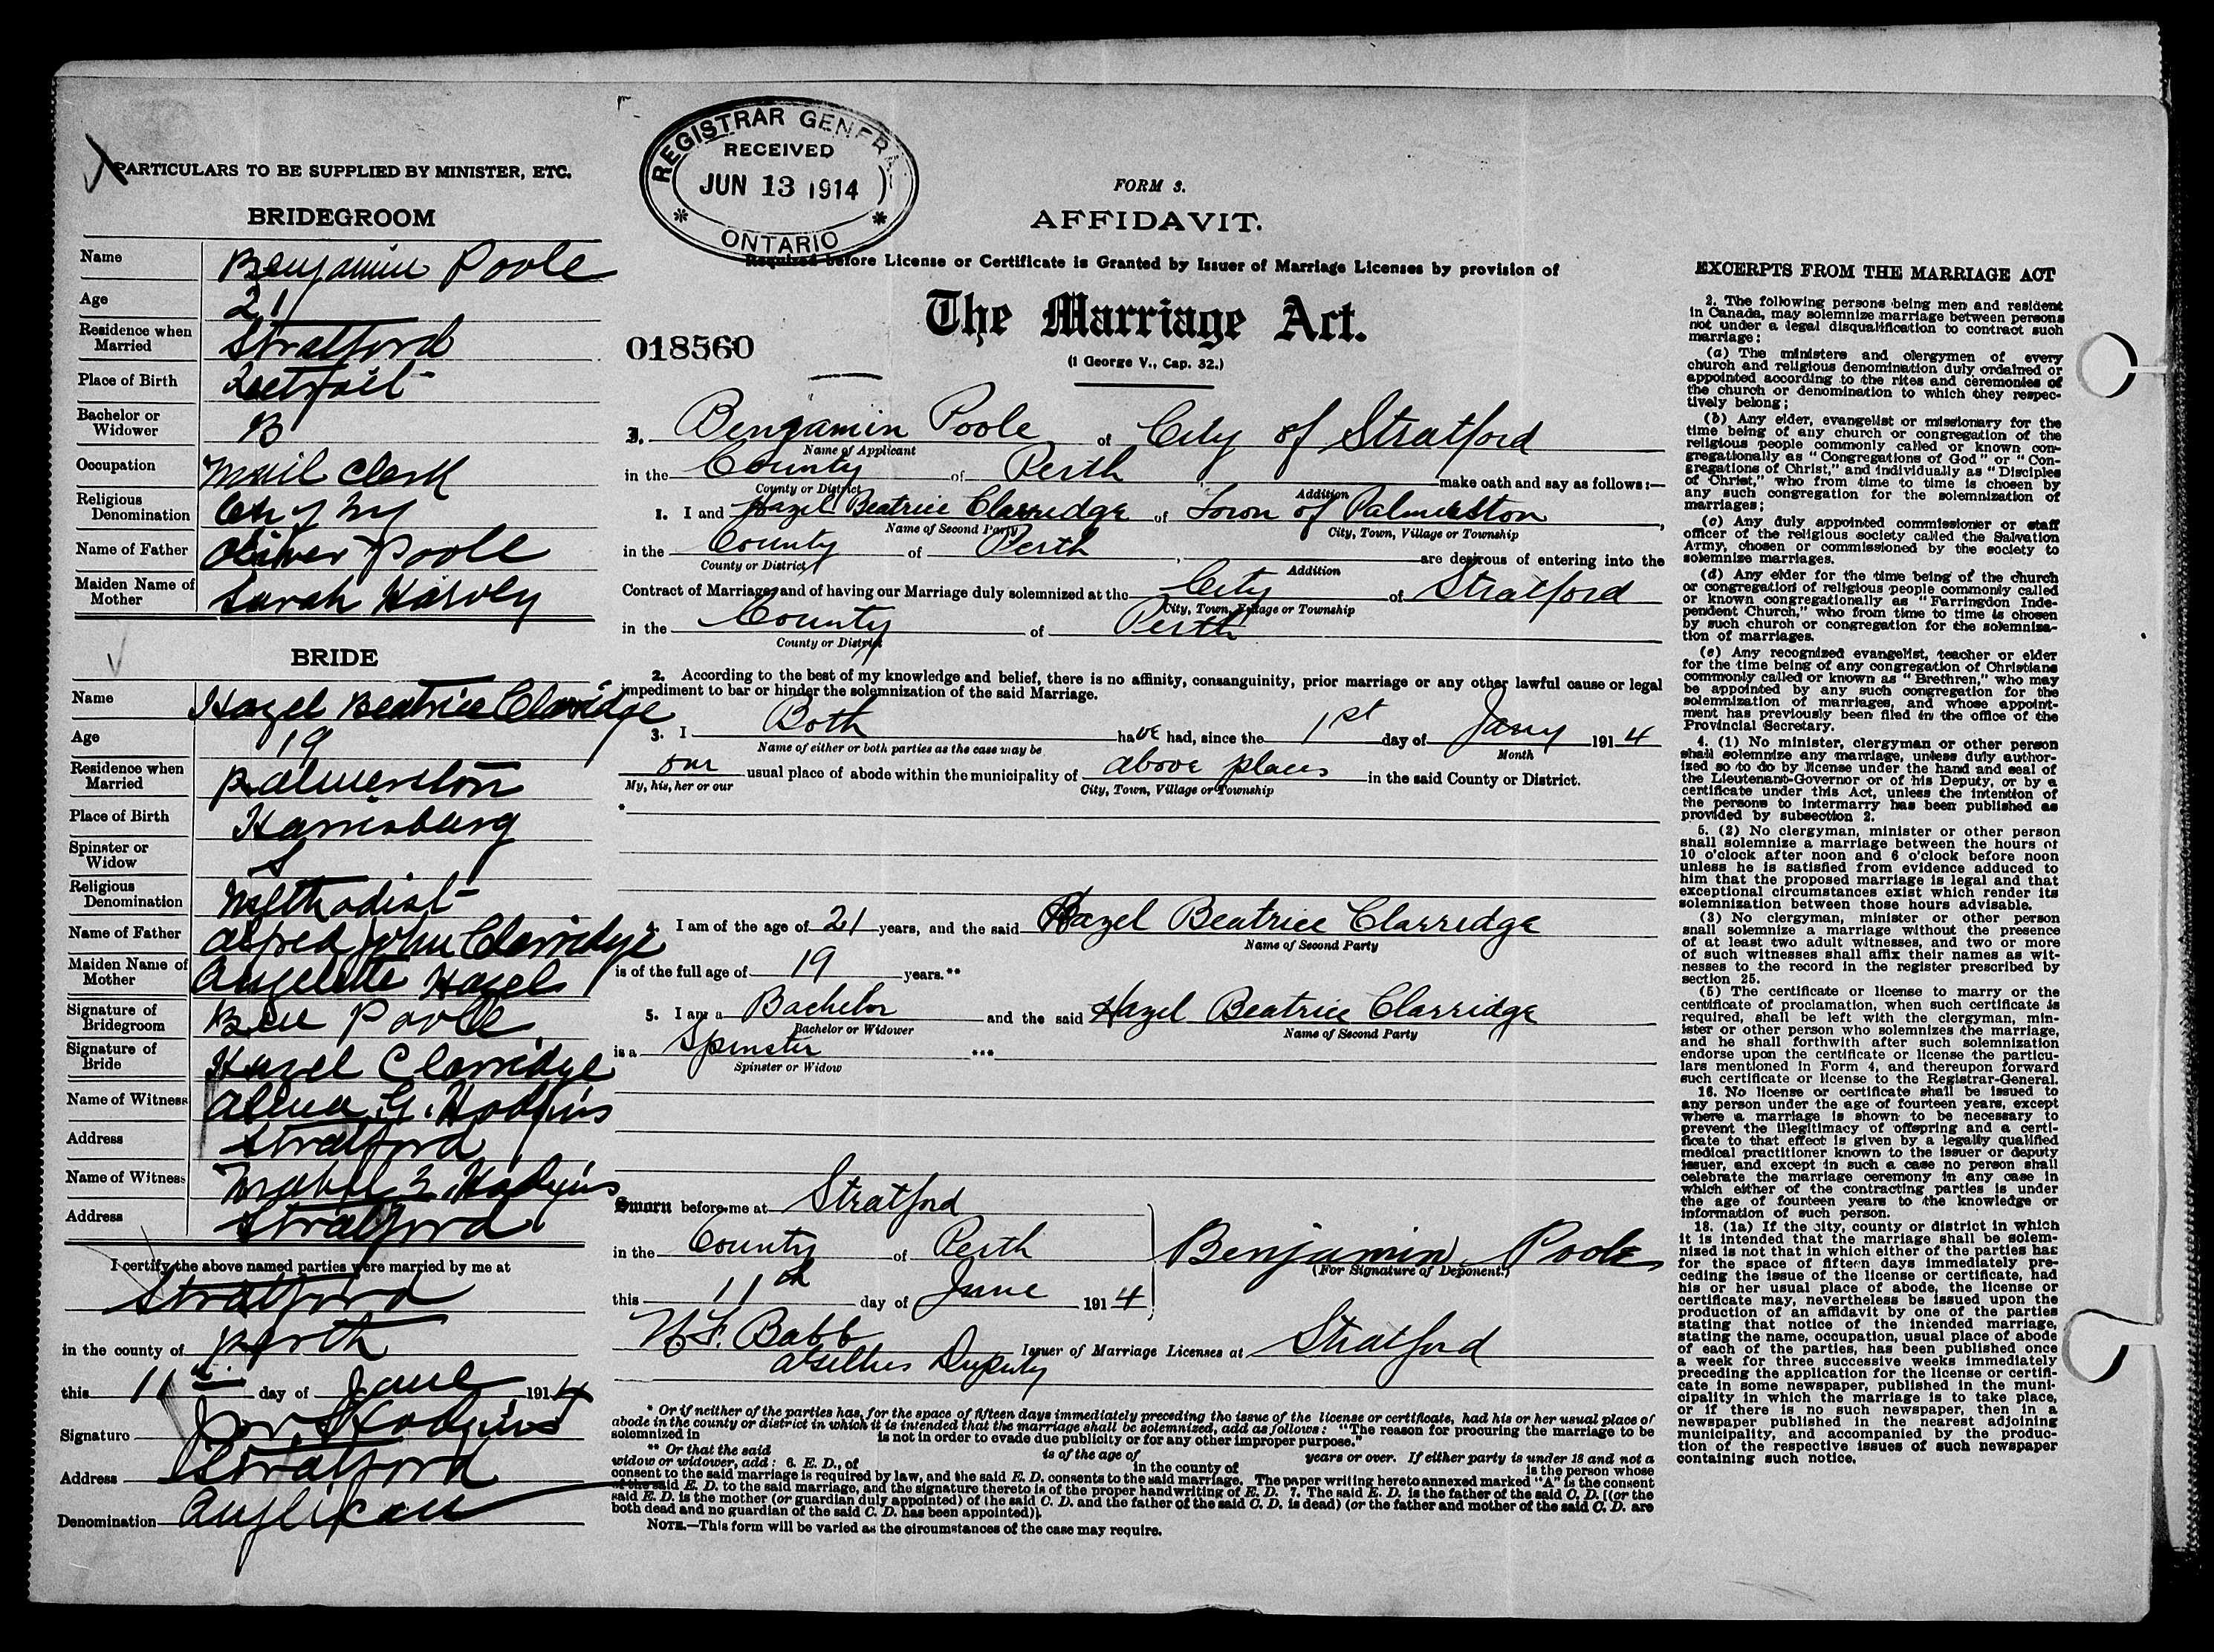 PARTICULARS TO BE SUPPLIED BY MINISTER, ETC.
BRIDEGROOM
Name Benjamin Poole
Age 21
Residence when Married Stratford
Place of Birth
Bachelor or Widower B
Occupation Mail Clerk
Religious Denomination Ch of
Name of Father Oliver Poole
Maiden Name of Mother Sarah
BRIDE
Name Hazel Beatrice Clarridge
Age 19
Residence when Married Palmerston
Place of Birth Harrisburg
Spinster or Widow S
Religious Denomination Methodist
Name of Father Alfred John Clarridge
Maiden Name of Mother
Signature of Bridegroom Ben Poole
Signature of Bride Hazel Clarridge
Name of Witness Hodgins
Address Stratford
Name of Witness Hodgins
Address Stratford
I certify the above named parties were married by me at
Stratford
in the county of Perth
this 11th day of June 1914
Signature Hodgins
Address Stratford
Denomination Anglican
REGISTRAR GENERAL
RECEIVED
JUN 13 1914
ONTARIO
FORM 3.
AFFIDAVIT.
Required before License or Certificate is Granted by Issuer of Marriage Licenses by provision of
The Marriage Act.
(1 George V., Cap. 32.)
018560
I. Benjamin Poole of City of Stratford
Name of Applicant
in the County of Perth make oath and say as follows:—
County or District Addition
1. I and Hazel Beatrice Clarridge of Town of Palmerston,
Name of Second Party City, Town, Village or Township
in the County of Perth, are desirous of entering into the
County or District Addition
Contract of Marriage, and of having our Marriage duly solemnized at the City of Stratford
City, Town, Village or Township
in the County of Perth
County or District
2. According to the best of my knowledge and belief, there is no affinity, consanguinity, prior marriage or any other lawful cause or legal
impediment to bar or hinder the solemnization of the said Marriage.
3. I Both have had, since the 1st day of Jany 1914
Name of either or both parties as the case may be Month
our usual place of abode within the municipality of above places in the said County or District.
My, his, her or our City, Town, Village or Township
*
4. I am of the age of 21 years, and the said Hazel Beatrice Clarridge
Name of Second Party
is of the full age of 19 years.**
5. I am a Bachelor and the said Hazel Beatrice Clarridge
Bachelor or Widower Name of Second Party
is a Spinster ***
Spinster or Widow
Sworn before me at Stratford
in the County of Perth
this 11th day of June 1914
Benjamin Poole
(For Signature of Deponent.)
Babb
Issuer of Marriage Licenses at Stratford
Deputy
* Or if neither of the parties has, for the space of fifteen days immediately preceding the issue of the license or certificate, had his or her usual place of
abode in the county or district in which it is intended that the marriage shall be solemnized, add as follows: "The reason for procuring the marriage to be
solemnized in is not in order to evade due publicity or for any other improper purpose."
** Or that the said is of the age of years or over. If either party is under 18 and not a
widow or widower, add: 6. E. D., of in the county of is the person whose
consent to the said marriage is required by law, and the said E. D. consents to the said marriage. The paper writing hereto annexed marked "A" is the consent
of the said E. D. to the said marriage, and the signature thereto is of the proper handwriting of E. D. 7. The said E. D. is the father of the said C. D. [(or the
said E. D. is the mother (or guardian duly appointed) of the said C. D. and the father of the said C. D. is dead) (or the father and mother of the said C. D. are
both dead and no guardian of the said C. D. has been appointed)].
NOTE.—This form will be varied as the circumstances of the case may require.
EXCERPTS FROM THE MARRIAGE ACT
2. The following persons being men and resident
in Canada, may solemnize marriage between persons
not under a legal disqualification to contract such
marriage:
(a) The ministers and clergymen of every
church and religious denomination duly ordained or
appointed according to the rites and ceremonies of
the church or denomination to which they respec-
tively belong;
(b) Any elder, evangelist or missionary for the
time being of any church or congregation of the
religious people commonly called or known con-
gregationally as "Congregations of God" or "Con-
gregations of Christ," and individually as "Disciples
of Christ," who from time to time is chosen by
any such congregation for the solemnization of
marriages;
(c) Any duly appointed commissioner or staff
officer of the religious society called the Salvation
Army, chosen or commissioned by the society to
solemnize marriages.
(d) Any elder for the time being of the church
or congregation of religious people commonly called
or known congregationally as "Farringdon Inde-
pendent Church," who from time to time is chosen
by such church or congregation for the solemniza-
tion of marriages.
(e) Any recognized evangelist, teacher or elder
for the time being of any congregation of Christians
commonly called or known as "Brethren," who may
be appointed by any such congregation for the
solemnization of marriages, and whose appoint-
ment has previously been filed in the office of the
Provincial Secretary.
4. (1) No minister, clergyman or other person
shall solemnize any marriage, unless duly author-
ized so to do by license under the hand and seal of
the Lieutenant-Governor or of his Deputy, or by a
certificate under this Act, unless the intention of
the persons to intermarry has been published as
provided by subsection 2.
5. (2) No clergyman, minister or other person
shall solemnize a marriage between the hours of
10 o'clock after noon and 6 o'clock before noon
unless he is satisfied from evidence adduced to
him that the proposed marriage is legal and that
exceptional circumstances exist which render its
solemnization between those hours advisable.
(3) No clergyman, minister or other person
shall solemnize a marriage without the presence
of at least two adult witnesses, and two or more
of such witnesses shall affix their names as wit-
nesses to the record in the register prescribed by
section 25.
(5) The certificate or license to marry or the
certificate of proclamation, when such certificate is
required, shall be left with the clergyman, min-
ister or other person who solemnizes the marriage,
and he shall forthwith after such solemnization
endorse upon the certificate or license the particu-
lars mentioned in Form 4, and thereupon forward
such certificate or license to the Registrar-General.
16. No license or certificate shall be issued to
any person under the age of fourteen years, except
where a marriage is shown to be necessary to
prevent the illegitimacy of offspring and a certi-
ficate to that effect is given by a legally qualified
medical practitioner known to the issuer or deputy
issuer, and except in such a case no person shall
celebrate the marriage ceremony in any case in
which either of the contracting parties is under
the age of fourteen years to the knowledge or
information of such person.
18. (1a) If the city, county or district in which
it is intended that the marriage shall be solem-
nized is not that in which either of the parties has
for the space of fifteen days immediately pre-
ceding the issue of the license or certificate, had
his or her usual place of abode, the license or
certificate may, nevertheless be issued upon the
production of an affidavit by one of the parties
stating that notice of the intended marriage,
stating the name, occupation, usual place of abode
of each of the parties, has been published once
a week for three successive weeks immediately
preceding the application for the license or certifi-
cate in some newspaper, published in the muni-
cipality in which the marriage is to take place,
or if there is no such newspaper, then in a
newspaper published in the nearest adjoining
municipality, and accompanied by the produc-
tion of the respective issues of such newspaper
containing such notice.